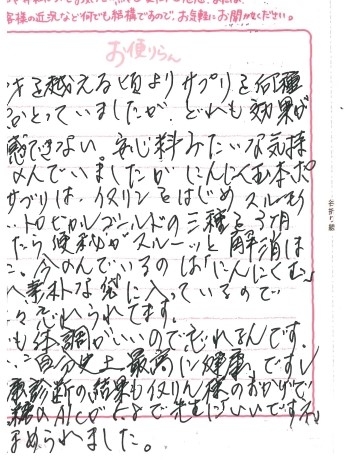 客様の近況など何でも結構ですので、お気軽にお聞かせください。
お便りらん
才を越える頃よりサプリを何種
とっていましたが、どれも効果が
感できない。おじ料みたいな気持
のんでいましたがにんにくむ本ポ
サプリは、イヌリンをはじめスルもり
トロピカルゴールドの三種を3ヶ月
たら便秘がスルーッと解消は
。今のんでいるのは「にんにくむ」
素朴な袋に入っているので
忘れられてます。
も体調がいいので忘れるんです。
自分史上最高に健康です
康診断の結果もイヌリン様のおかげで
糖のA1Cが で先生にいいですね
まめられました。